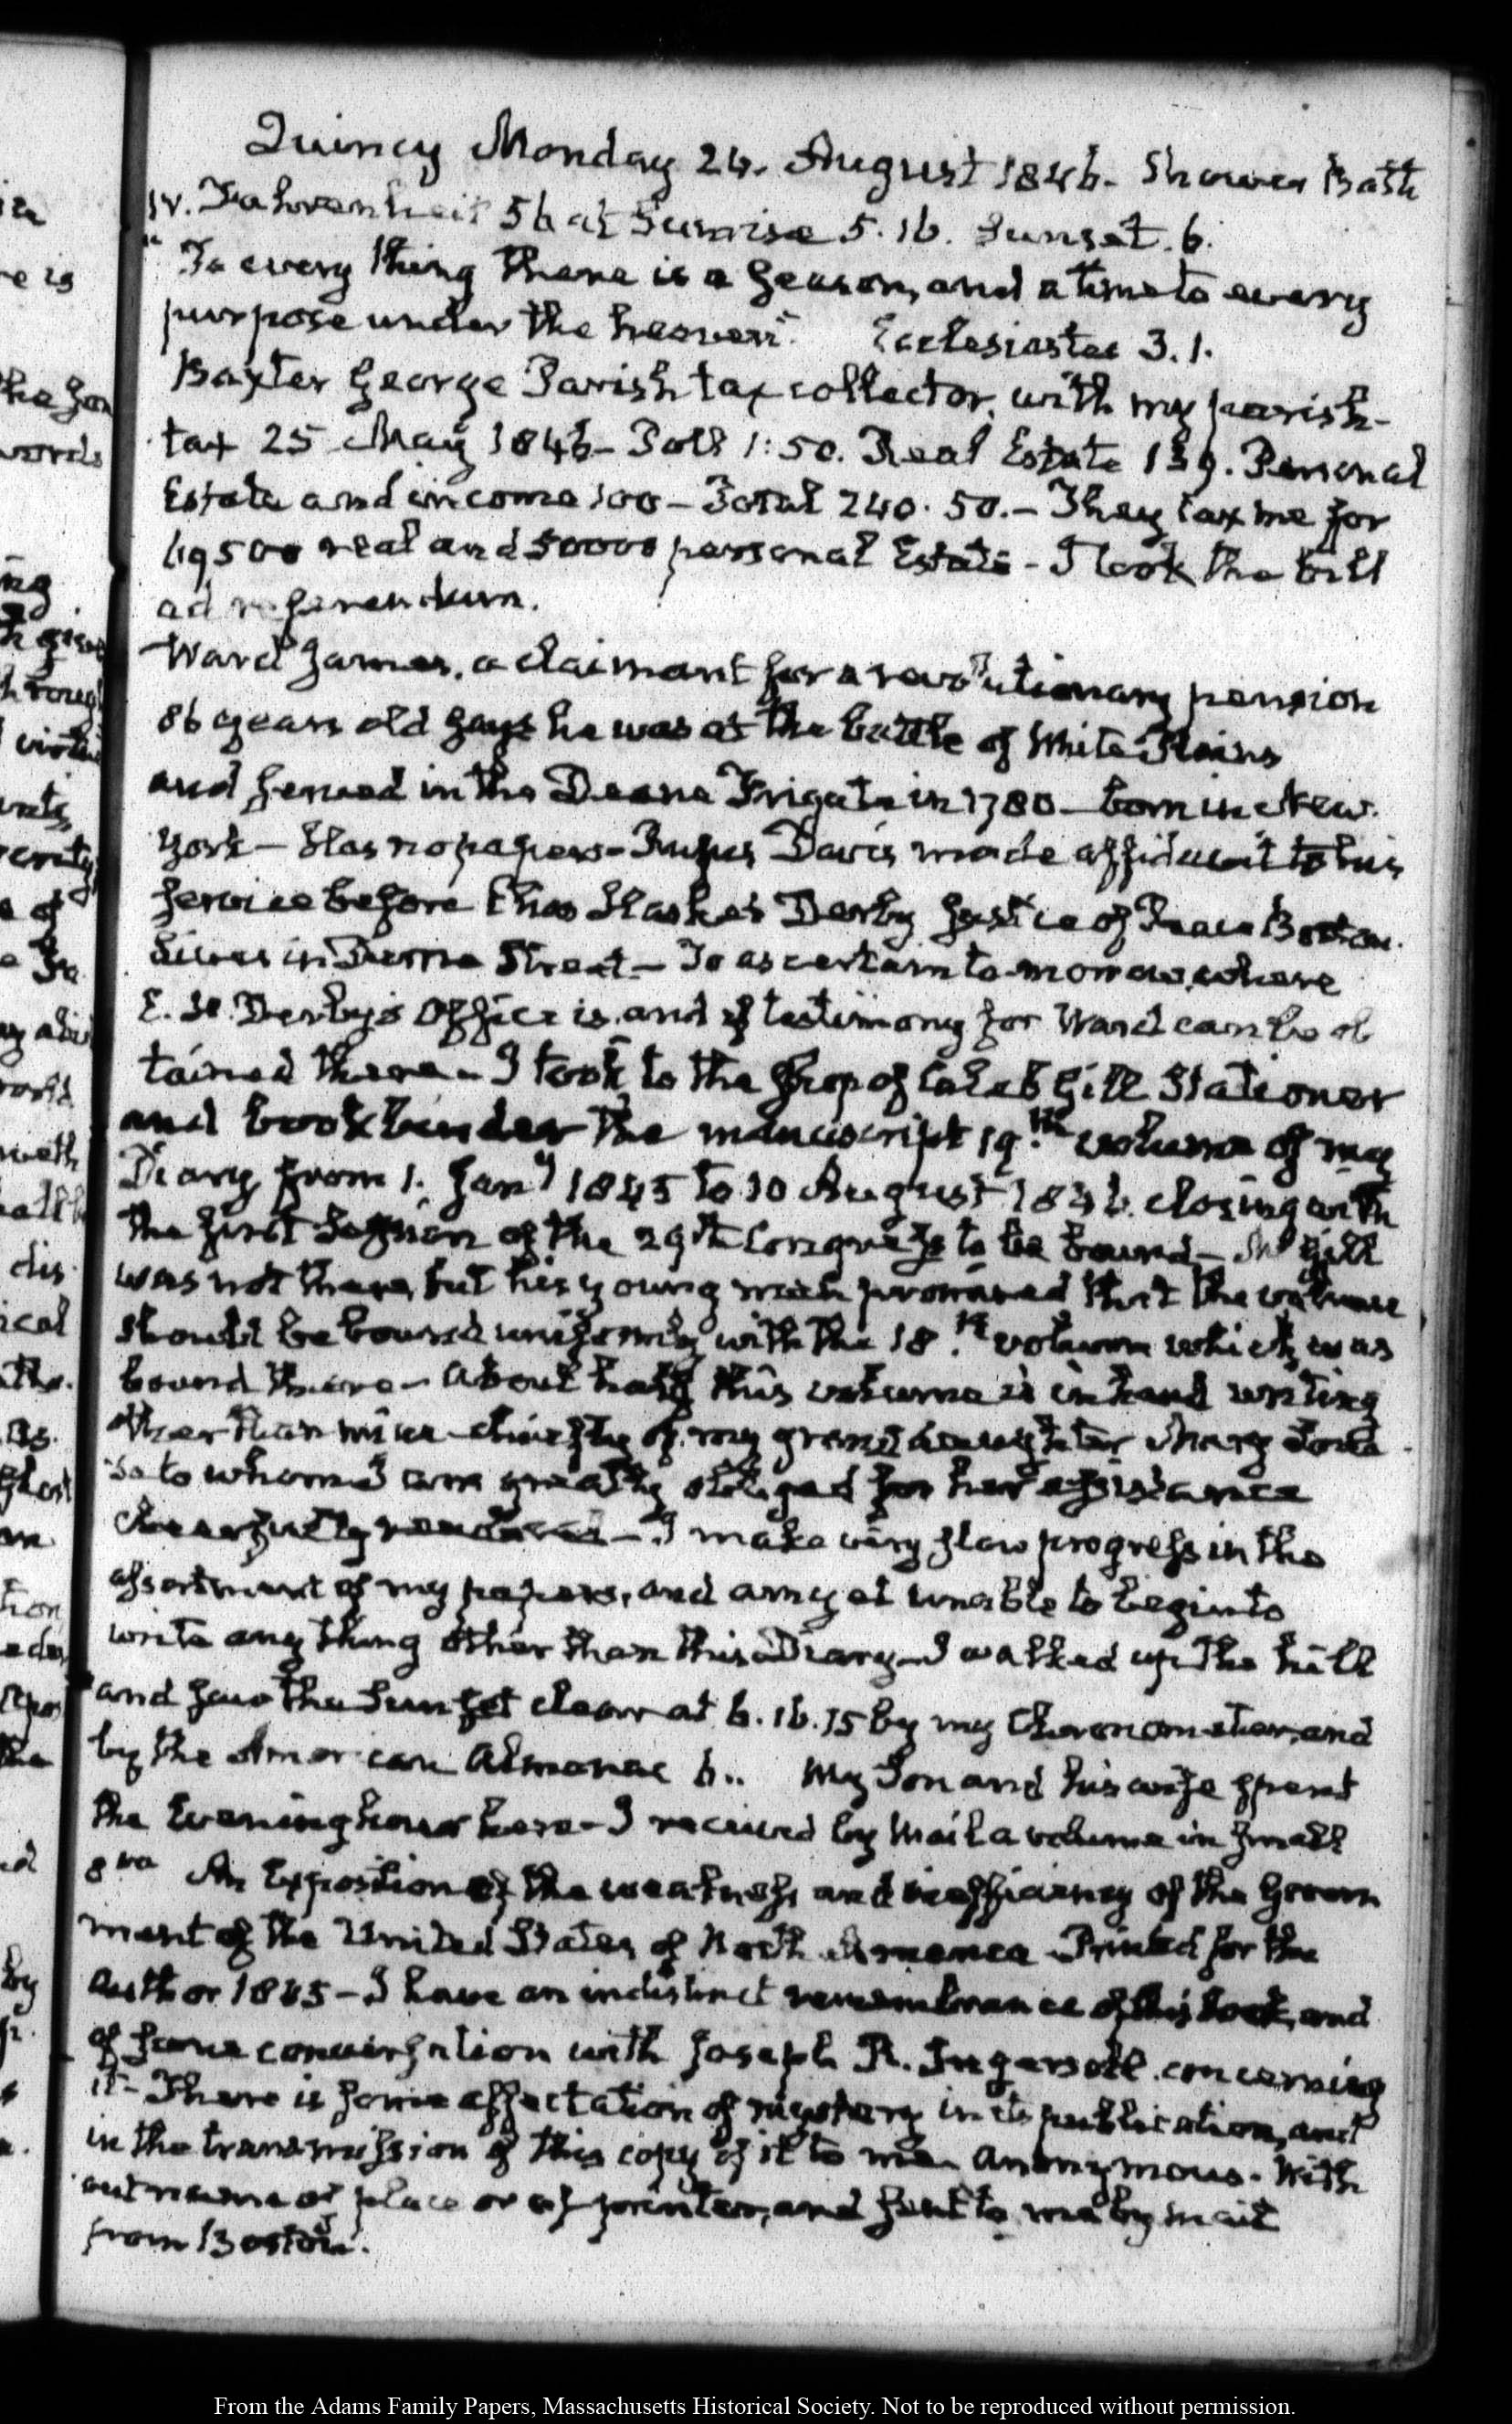 Quincy Monday 24. August 1846. Shower Bath
IV. Fahrenheit 56 at Sunrise 5.16. Sunset. 6.
"To every thing there is a Season, and a time to every
purpose under the heaven". Ecclesiastes 3.1.
Baxter George Parish tax collector, with my parish-
tax 25 May 1846- Poll 1:50. Real Estate 139. Personal
Estate and income 100 – Total 240.50. – They tax me for
69500 real and 50000 personal Estate - I took the bill
ad referendum.
Ward James, a claimant for a revolutionary pension
86 years old says he was at the battle of White Plains
and served in the Deane Frigate in 1780 – born in New-
York – Has no papers – Rufus Davis made affidavit to his
service before Elias Hasket Derby Justice of Peace Boston.
Lives in Derne Street – To ascertain to-morrow, where
E. H. Derby's Office is, and if testimony for Ward can be ob
tained there – I took to the shop of Caleb Gill Stationer
and bookbinder the manuscript 19.th volume of my
Diary from 1. Jany 1845 to 10 August 1846. closing with
the first Session of the 29th Congress to be bound – Mr Gill
was not there, but his young man promised that the volume
should be bound uniformly with the 18.th volume which was
bound there – about half this volume is in hand writing
other than mine – chiefly of my grand daughter Mary Loui
sa to whom I am greatly obliged for her assistance
cheerfully rendered – I make very slow progress in the
assortment of my papers, and am yet unable to begin to
write any thing other than this Diary – I walked up the hill
and saw the Sun set clear at 6.16.15 by my Chronometer, and
by the American Almanac 6.. My Son and his wife spent
the Evening hour here – I received by Mail a volume in small
8vo An Exposition of the weakness and inefficiency of the Govern
ment of the United States of North America – Printed for the
author 1845 – I have an indistinct remembrance of this book, and
of some conversation with Joseph R. Ingersoll concerning
it – There is some affectation of mystery in its publication, and
in the transmission of this copy of it to me – anonymous – With
out name of place or of printer, and sent to me by mail
from Boston.
From the Adams Family Papers, Massachusetts Historical Society. Not to be reproduced without permission.